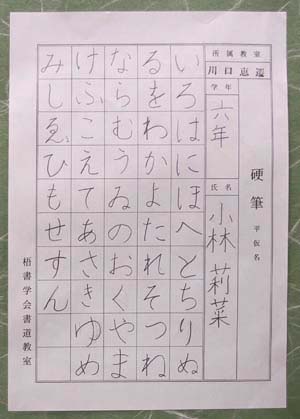 硬筆 平仮名
所属教室
川口
学年
六年
氏名
小林 莉菜
いろはにほへとちりぬ
るをわかよたれそつね
ならむうゐのおくやま
けふこえてあさきゆめ
みしゑひもせすん
梧書学会書道教室